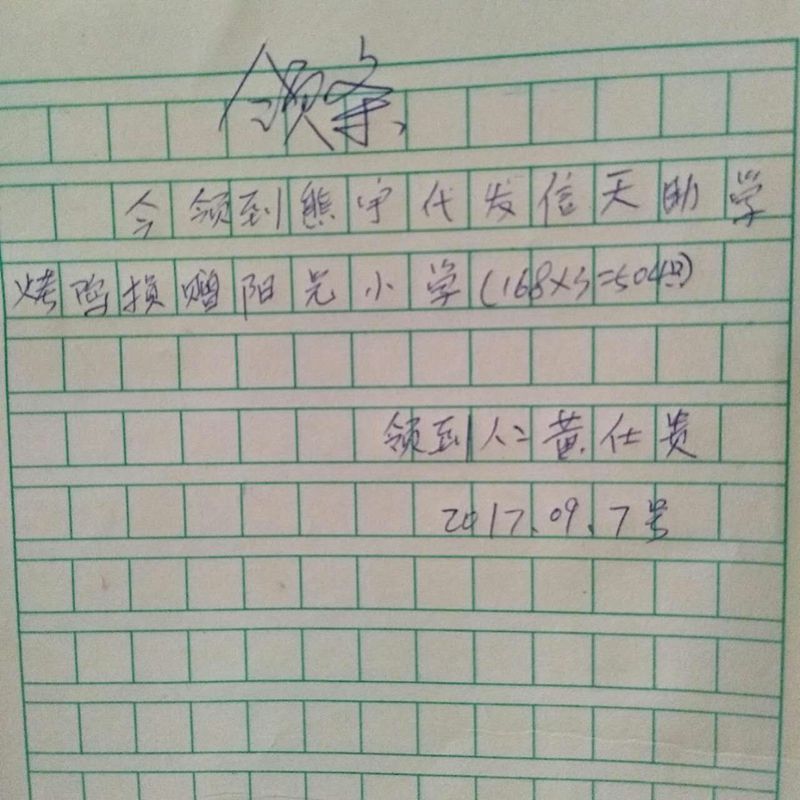 领条
今领到熊宇代发信天助学
烤鸡损赠阳光小学(168×3=504只)
领到人:黄仕贵
2017.09.7号